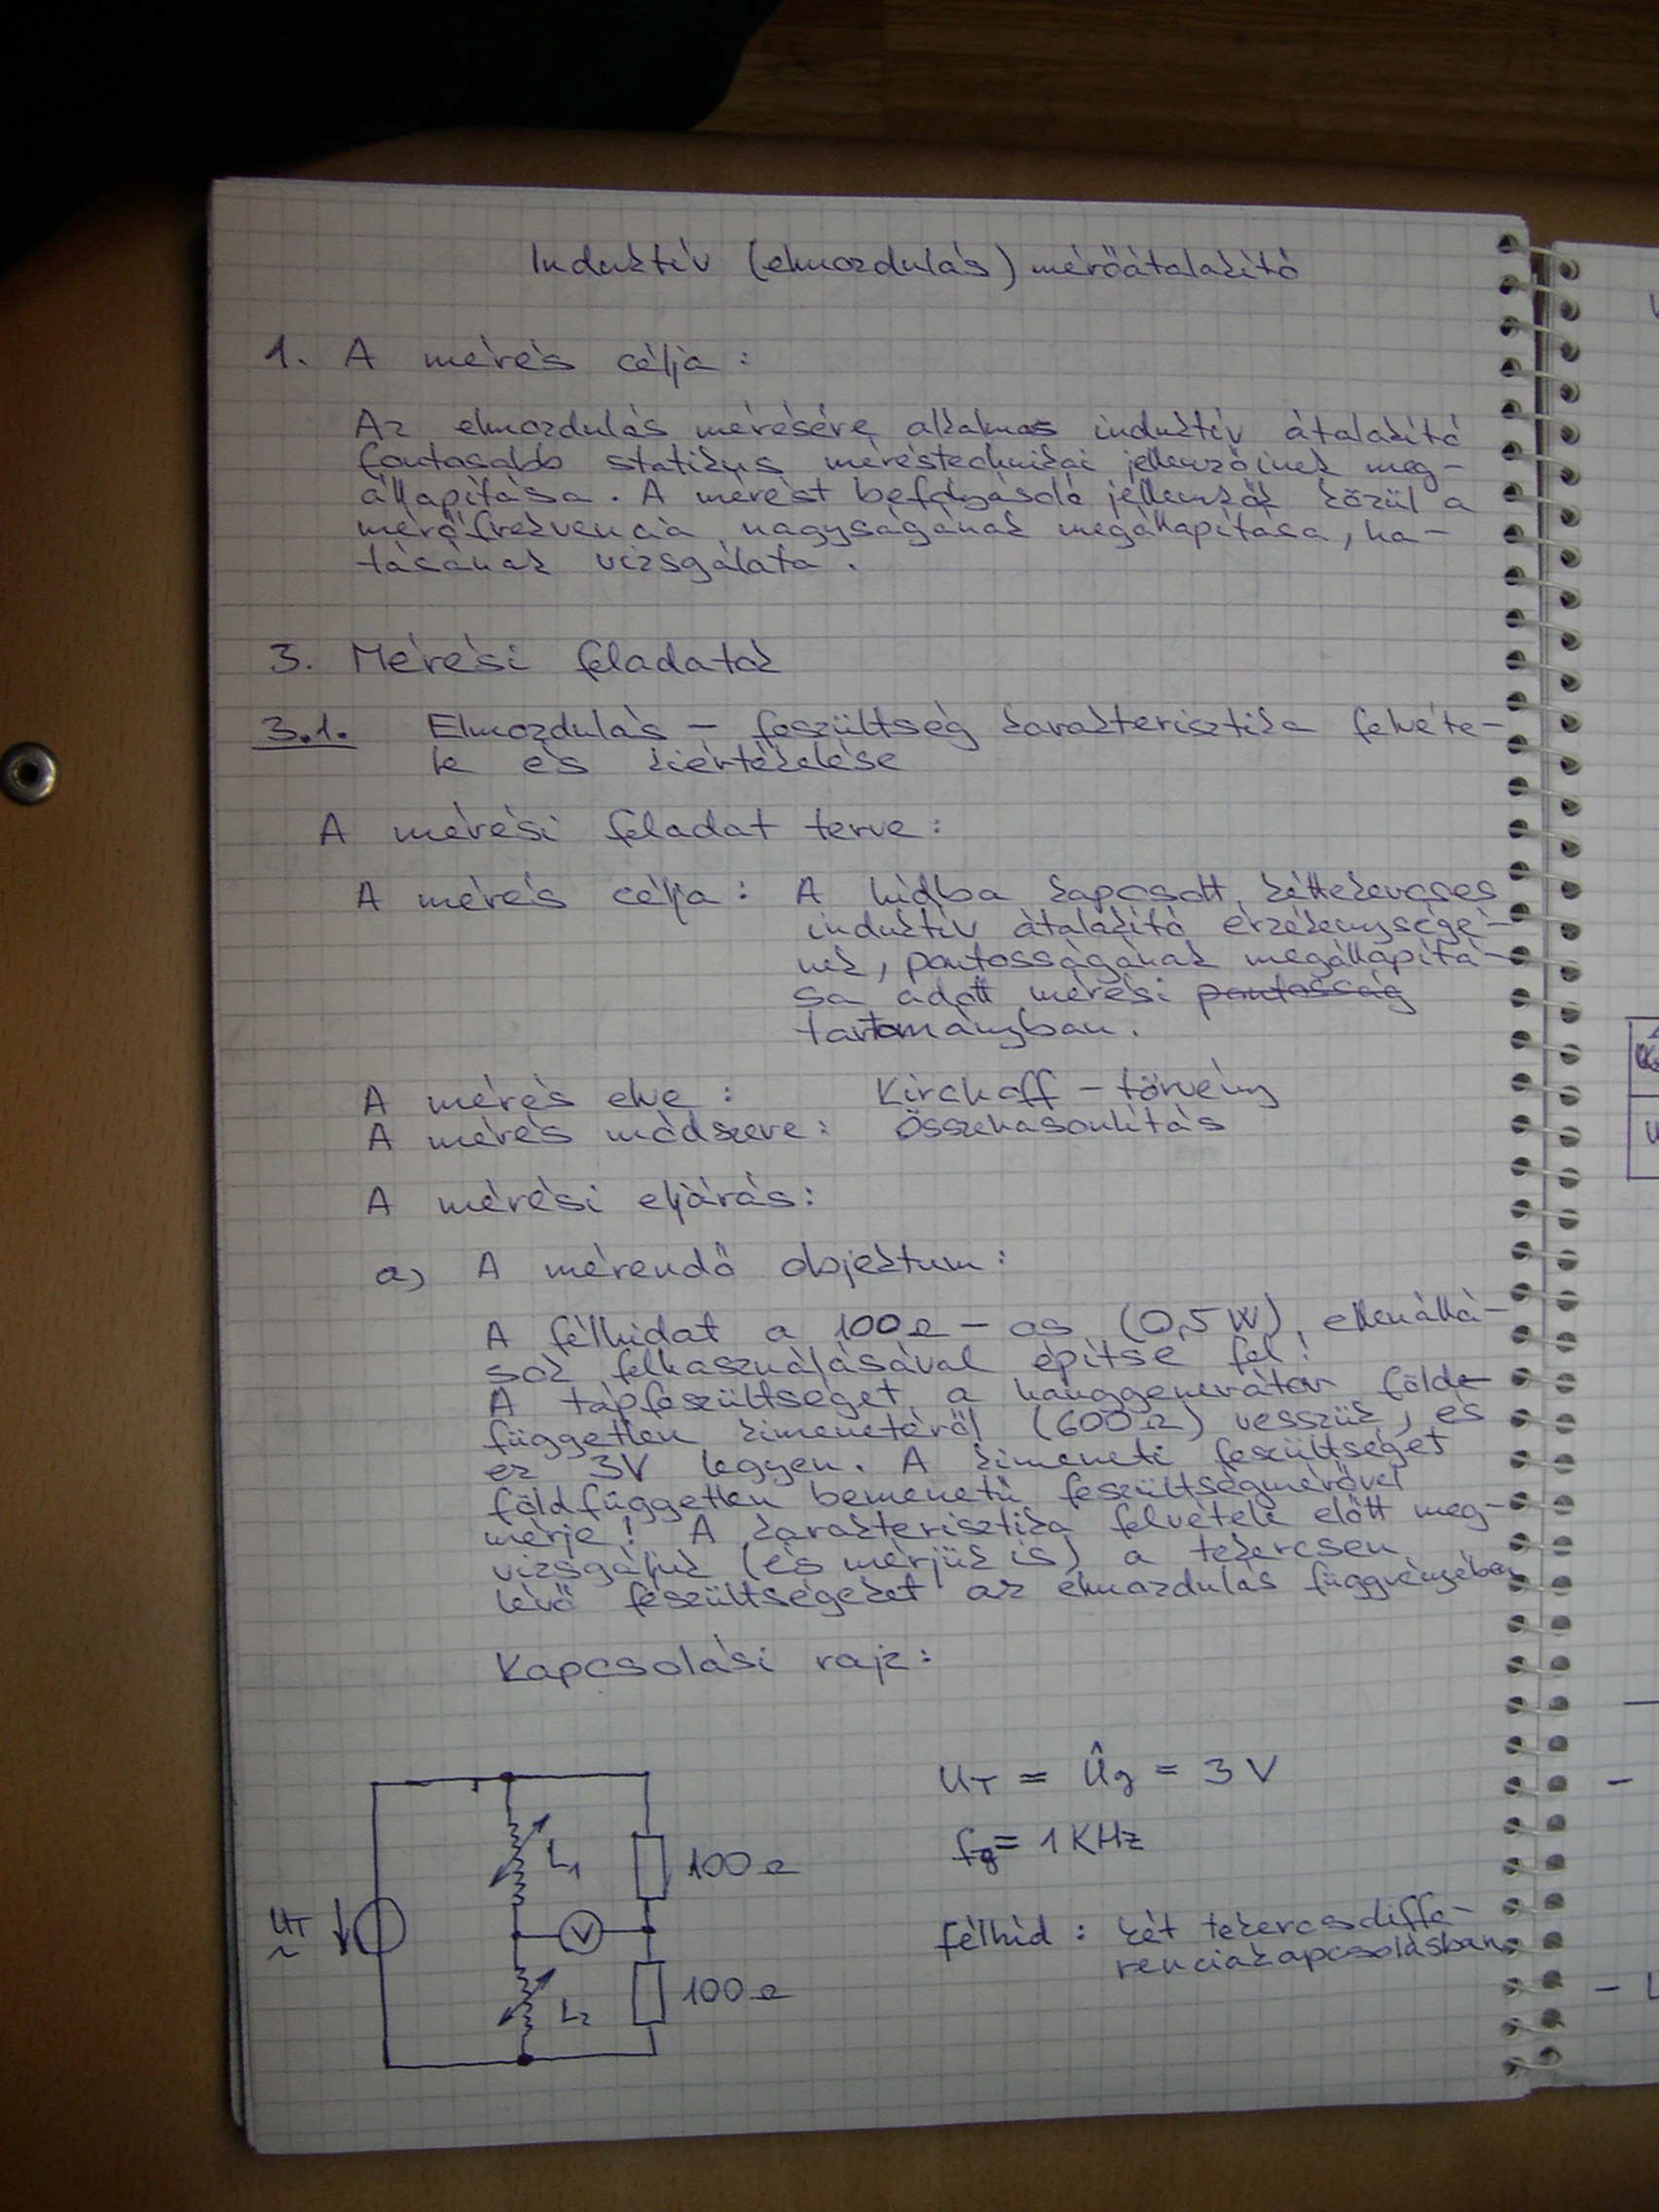 Induktív (elmozdulás) mérőátalakító
1. A mérés célja:
Az elmozdulás mérésére alkalmas induktív átalakító
fontosabb statikus méréstechnikai jellemzőinek meg-
állapítása. A mérést befolyásoló jellemzők közül a
mérőfrekvencia nagyságának megállapítása, ha-
tásának vizsgálata.
3. Mérési feladatok
3.1. Elmozdulás - feszültség karakterisztika felvéte-
le és kiértékelése
A mérési feladat terve:
A mérés célja: A hídba kapcsolt kéttekercses
induktív átalakító érzékenységé-
nek, pontosságának megállapítá-
sa adott mérési pontosság
tartományban.
A mérés elve: Kirchoff - törvény
A mérés módszere: Összehasonlítás
A mérési eljárás:
a) A mérendő objektum:
A félhidat a 100Ω - os (0,5W) ellenállá-
sok felhasználásával építse fel!
A tápfeszültséget a hanggenerátor földe
független kimenetéről (600Ω) vesszük, és
ez 3V legyen. A kimeneti feszültséget
földfüggetlen bemenetű feszültségmérővel
mérje! A karakterisztika felvétele előtt meg-
vizsgáljuk (és mérjük is) a tekercsen
lévő feszültségeket az elmozdulás függvényében
Kapcsolási rajz:
U_T = Û_g = 3 V
f_g = 1 KHz
L₁
100Ω
U_T
~
V
félhíd: két tekercs diffe-
renciálkapcsolásban
L₂
100Ω